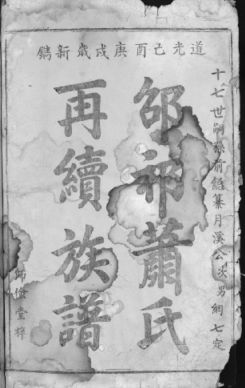 道光己酉庚戌歲新鐫
十七世嗣孫前銘纂月溪公次男綱七定
邵祁蕭氏
再續族譜
師儉堂梓